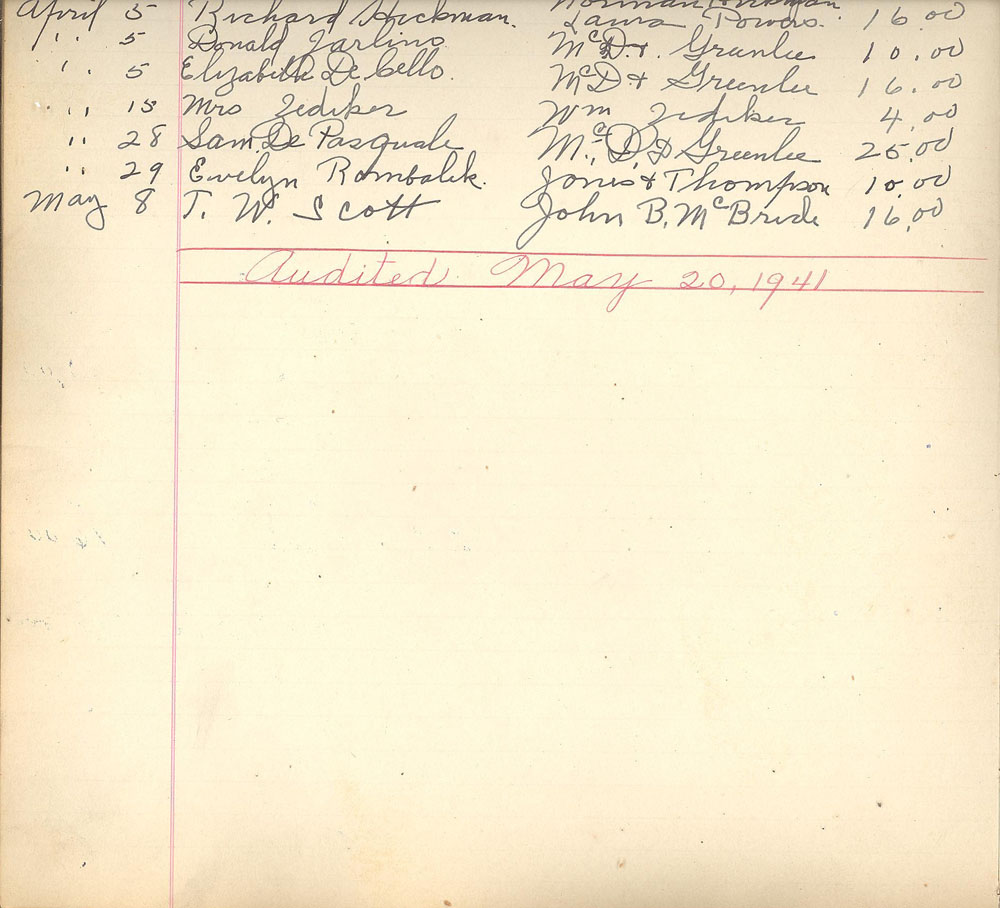 April 5 Richard Hickman. Laura Powers. 16.00
" 5 Donald Jarlino McD. & Greenlee 10.00
" 5 Elizabeth De Cello. McD & Greenlee 16.00
" 15 Mrs Zediker Wm Zediker 4.00
" 28 Sam. De Pasquale Mc. D. & Greenlee 25.00
" 29 Evelyn Rambalik. Jones & Thompson 10.00
May 8 T. W. Scott John B. McBride 16.00
Audited May 20, 1941